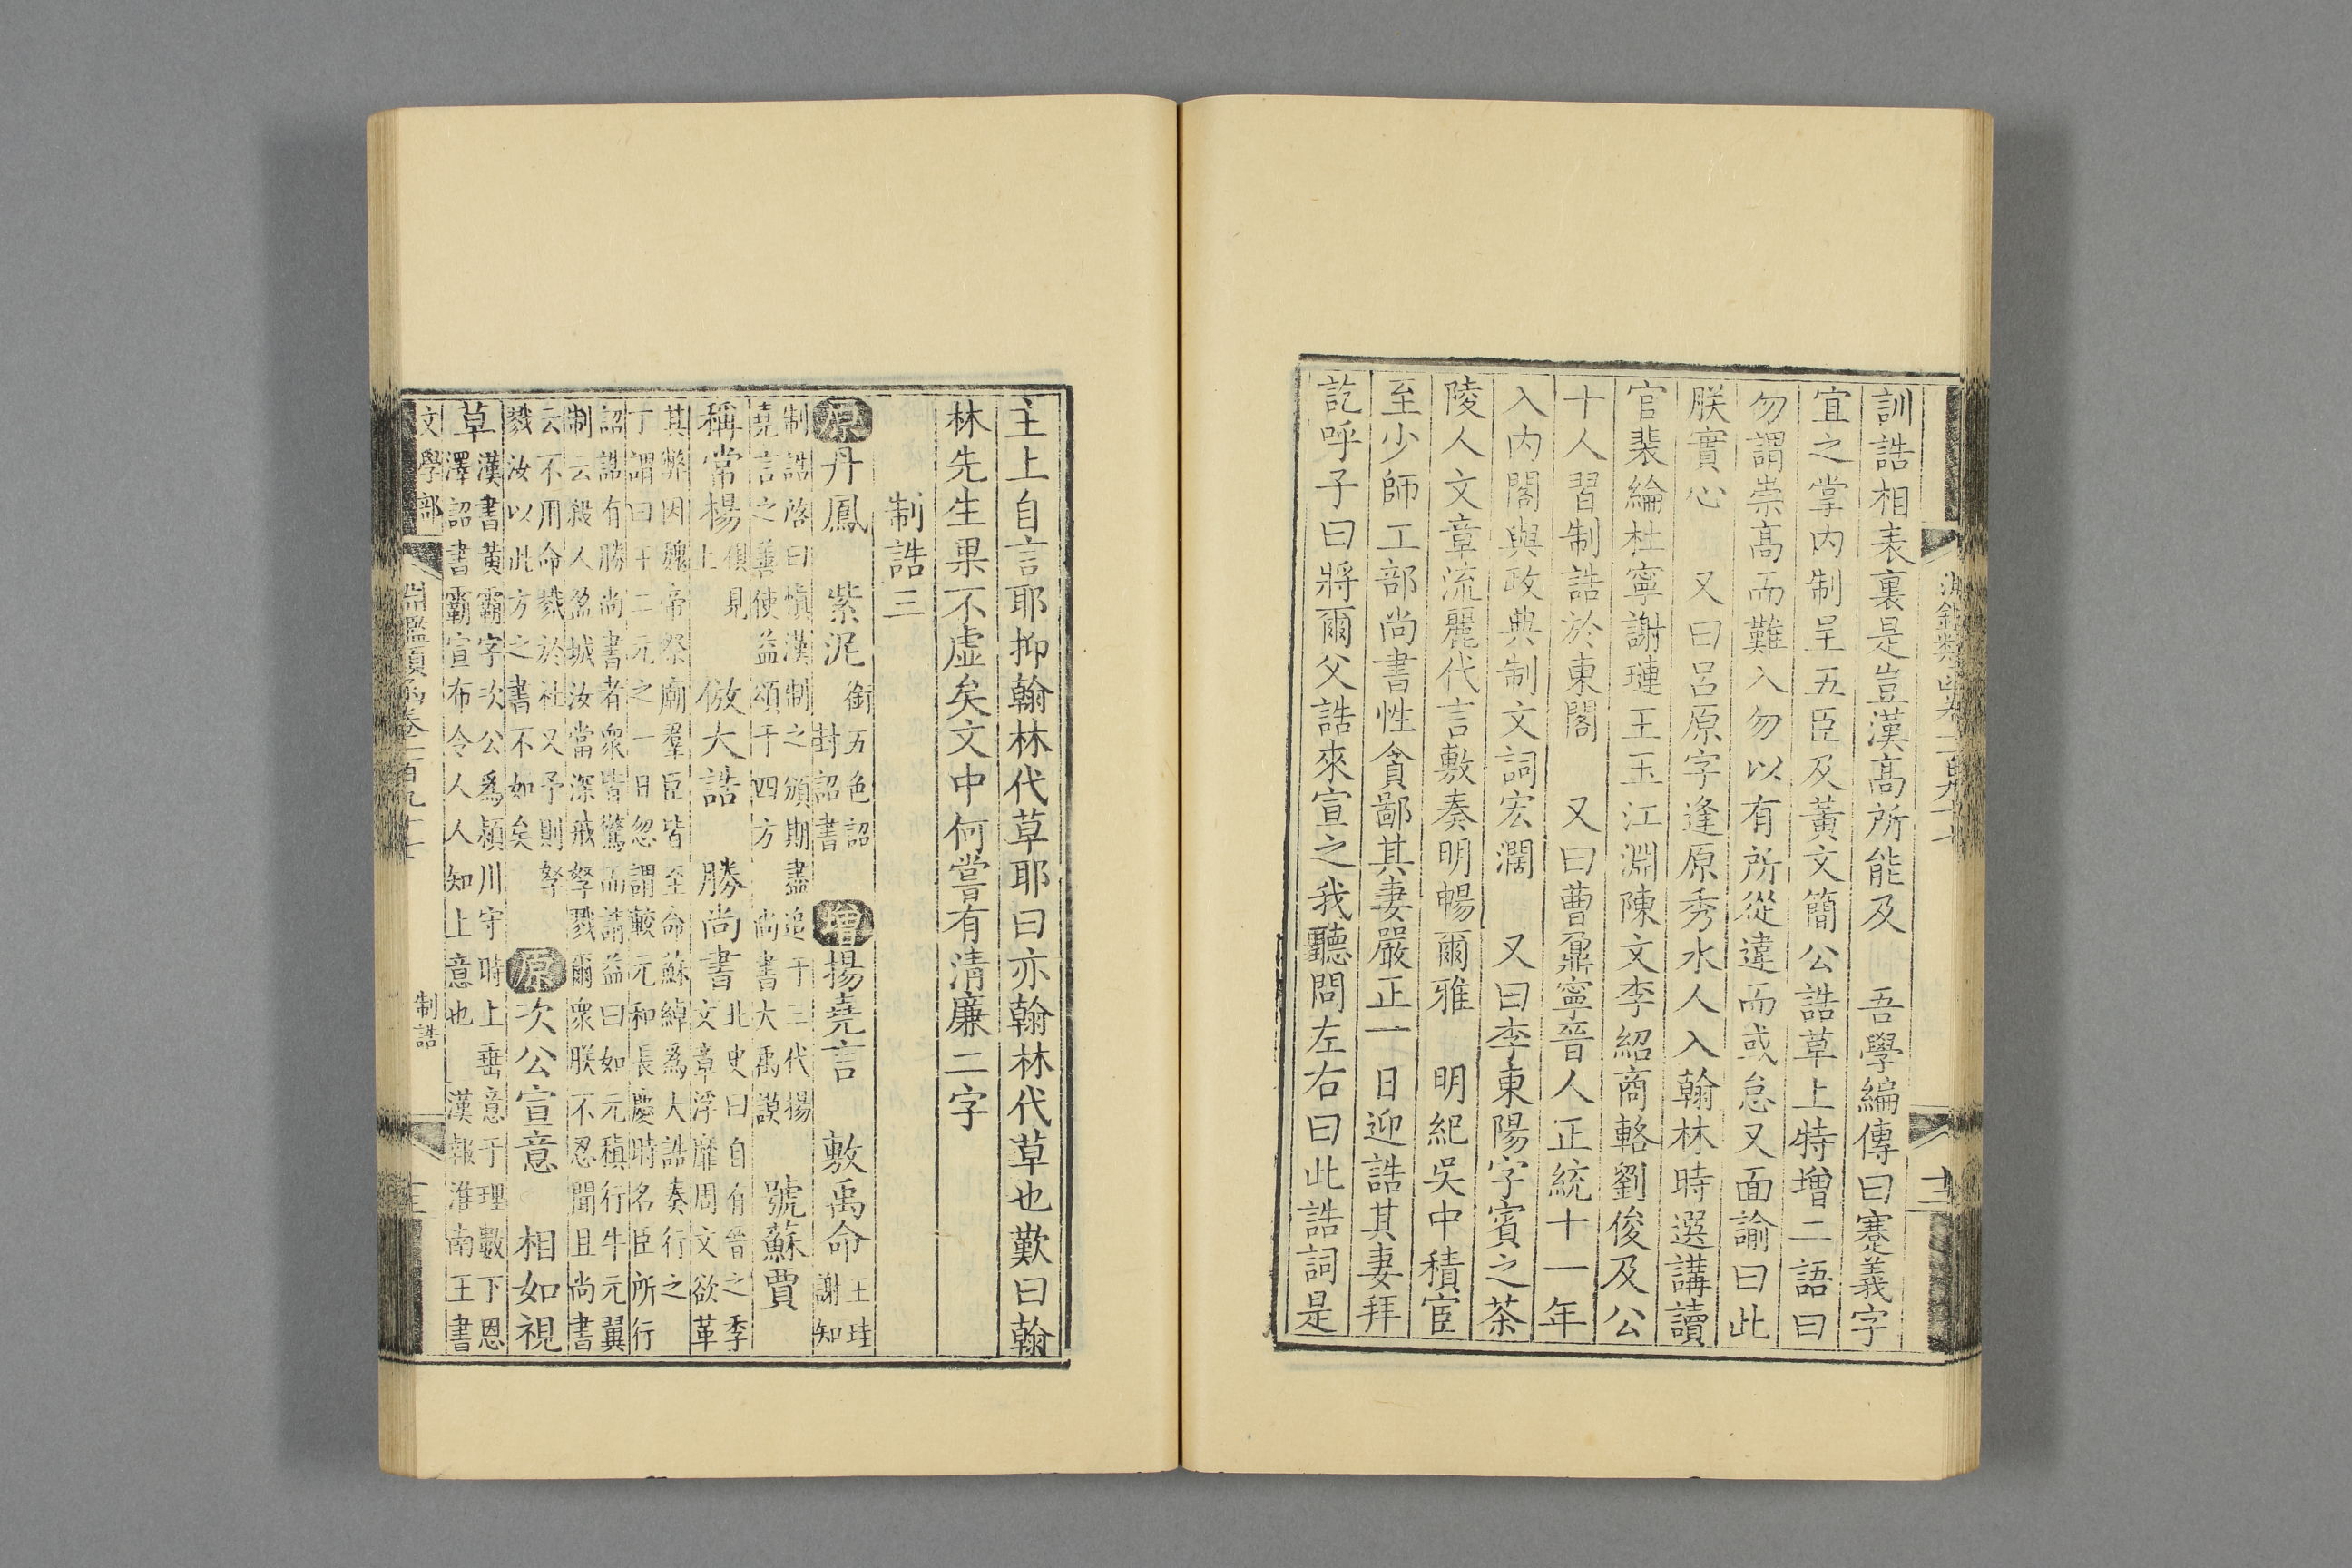 訓誥相表裏是豈漢髙所能及　吾學編傳曰蹇義字
宜之掌内制呈五臣及黃文簡公誥草上特增二語曰
勿謂崇髙而難入勿以有所從違而或怠又面諭曰此
朕實心　又曰呂原字逢原秀水人入翰林時選講讀
官裴綸杜寧謝璉王玉江淵陳文李紹商輅劉俊及公
十人習制誥於東閣　又曰曹鼐寧晉人正統十一年
入内閣與政典制文詞宏濶　又曰李東陽字賓之茶
陵人文章流麗代言敷奏明暢爾雅　明紀吳中積宦
至少師工部尚書性貪鄙其妻嚴正一日迎誥其妻拜
訖呼子曰將爾父誥來宣之我聽問左右曰此誥詞是
主上自言耶抑翰林代草耶曰亦翰林代草也歎曰翰
林先生果不虛矣文中何嘗有清廉二字
制誥三
原丹鳳　紫泥銜五色詔封詔書　增揚堯言　敷禹命王珪謝知
制誥啓曰愼漢制之頒期盡追于三代揚堯言之善使益頌于四方　尚書大禹謨　號蘇賈
稱常楊俱見上　倣大誥　勝尚書北史曰自有晉之季文章浮靡周文欲革
其弊因魏帝祭廟羣臣皆至命蘇綽爲大誥奏行之　丁謂曰王二元之一日忽謂較元和長慶時名臣所行
詔誥有勝尚書者衆皆驚而請益曰如元稹行牛元翼制云殺人盈城汝當深戒孥戮爾衆朕不忍聞且尚書
云不用命戮於社又予則孥戮汝以此方之書不如矣　原次公宣意　相如視
草漢書黃霸字次公爲潁川守時上垂意于理數下恩澤詔書霸宣布令人人知上意也　漢報淮南王書
文學部
淵鑑類函卷一百九十七
制誥